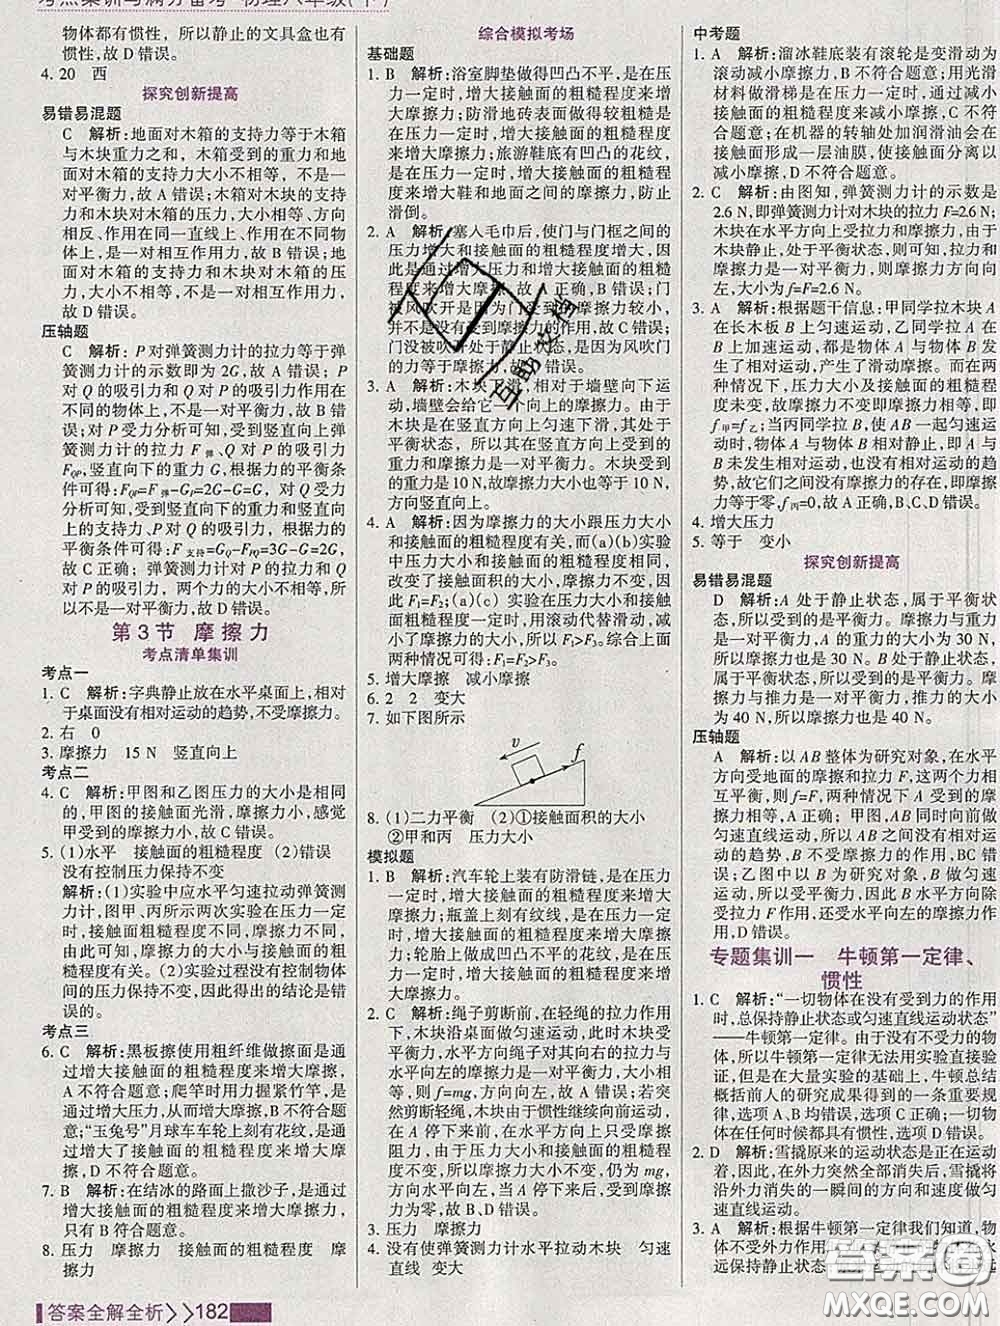 考点集训与满分备考 物理八年级(下)
物体都有惯性,所以静止的文具盒也有
惯性,故 D 错误。
4. 20 西
探究创新提高
易错易混题
C 解析:地面对木箱的支持力等于木箱
与木块重力之和，木箱受到的重力和地
面对木箱的支持力大小不相等，不是一
对平衡力,故 A 错误;木箱对木块的支持
力和木块对木箱的压力,大小相等、方向
相反、作用在同一直线上、作用在不同物
体上,是一对相互作用力,故 B 错误;地
面对木箱的支持力和木块对木箱的压
力,大小不相等,不是一对平衡力,
故 D 错误。
压轴题
C 解析:P 对弹簧测力计的拉力等于弹
簧测力计的示数即为 2G,故 A 错误;P
对 Q 的吸引力和 Q 对 P 的吸引力作用在
不同的物体上,不是一对平衡力,故 B 错
误;对 P 受力分析可知,受到竖直向上弹
簧测力计的拉力 F弹、Q 对 P 的吸引力
FQP、竖直向下的重力 G,根据力的平衡条
件可得:FQP=F弹-G=2G-G=G，对 Q 受力分析
可知,受到竖直向下的重力、竖直向上
的支持力、P 对 Q 的吸引力，根据力的平
衡条件可得:F支持=GQ-FPQ=3G-G=2G,
故 C 正确;弹簧测力计对 P 的拉力和 Q
对 P 的吸引力，两个力的大小不相等,所
以不是一对平衡力,故 D 错误。
第 3 节 摩擦力
考点清单集训
考点一
1. C 解析:字典静止放在水平桌面上,相对
于桌面没有相对运动的趋势,不受摩擦力。
2. 右 0
3. 摩擦力 15 N 竖直向上
考点二
4. C 解析:甲图和乙图压力的大小是相同
的，甲图的接触面光滑，摩擦力小，感觉
甲受到的摩擦力大,故 C 错误。
5. (1)水平 接触面的粗糙程度 (2)错误
没有控制压力保持不变
解析:(1)实验中应水平匀速拉动弹簧测
力计，图甲、丙所示两次实验在压力一定
时，接触面粗糙程度不同，摩擦力不同，
由此可知，摩擦力的大小与接触面的粗
糙程度有关。(2)实验过程没有控制物体
压力保持不变，因此得出的结论是错误
的。
考点三
6. C 解析:黑板擦使用粗纤维做擦面是通
过增大接触面粗糙程度来增大摩擦,
A 不符合题意;爬竿时用力握紧竹竿,是
通过增大压力,从而增大摩擦,B 不符合
题意;“玉兔号”月球车车轮轮缘刻有花纹
增大了接触面的粗糙程度,从而增大摩
擦,D 不符合题意。
7. B 解析:在结冰的路面上撒沙子,是通过
增大接触面的粗糙程度来增大摩擦力,
只有 B 符合题意。
8. 压力 摩擦力 接触面的粗糙程度 摩
擦力
综合模拟考场
基础题
1. B 解析:浴室脚垫做得凹凸不平,是在压
力一定时,增大接触面的粗糙程度来增
大摩擦力;防滑地砖表面做得较粗糙,是
在压力一定时,增大接触面的粗糙程度
来增大摩擦力;旅游鞋底有凹凸的花纹,
是在压力一定时,增大接触面的粗糙程
度来增大鞋和地面之间的摩擦力,防止
滑倒。
2. A 解析:塞入毛巾后,使门与门框之间的
压力增大和接触面的粗糙程度增大，因
此是通过增大压力和增大接触面的粗糙
程度来增大摩擦,故 A 正确,B 错误;门
被风吹开是因为门受到的摩擦力较小，
并不是没有受到摩擦力的作用,故 C 错误;
门没被吹开处于静止状态，是因为风吹门
的力等于摩擦力,故 D 错误。
3. A 解析:木块下滑,相对于墙壁向下运
动,墙壁会给它一个向上的摩擦力。由于
木块是在竖直方向上匀速下滑，其处于
平衡状态，所以其在竖直方向上受到的
重力和摩擦力为一对平衡力。木块受到
的重力为 10 N,故摩擦力也等于 10 N,方
向竖直向上。
4. A 解析:因为摩擦力的大小跟压力大小
和接触面的粗糙程度有关,而(a)(b)实验
中压力大小和接触面的粗糙程度相同，
改变了接触面积的大小,摩擦力不变,因此
F1=F2;(a)(c)实验在压力大小和接触面
粗糙程度相同时,用滚动代替滑动，减
小了摩擦力的大小,所以 F1>F3。综合上面
两种情况可得:F1=F2>F3。
5. 增大摩擦 减小摩擦
6. 2 2 变大
7. 如下图所示
v
f
8. (1)二力平衡 (2)①接触面积的大小
②甲和丙 压力大小
模拟题
1. B 解析:汽车轮上装有防滑链,是在压力
一定时,增大接触面的粗糙程度来增大
摩擦力;瓶盖上刻有纹线,是在压力一定
时,增大接触面的粗糙程度来增大摩擦
力;轮胎上做成凹凸不平的花纹,是在压
力一定时,增大接触面的粗糙程度来增
大摩擦。
2. C 解析:绳子剪断前,在轻绳的拉力作用
下,木块沿桌面做匀速运动,此时木块受
平衡力,水平方向绳子对其向右的拉力与
水平向左的摩擦力相等,大小都等于 mg,
即 f=mg,方向向左,故 A 错误;若突
然剪断轻绳,木块由于惯性继续向前运动，
在 A 停下来前,在水平方向上只受摩擦
阻力，由于压力大小和接触面的粗糙程
度不变,所以摩擦力大小不变,仍为 mg,
方向向左;当 A 停下来后，受到的摩擦
力为零,故 B、D 错误。
3. 压力 摩擦力
4. 没有使弹簧测力计水平拉动木块 匀速
直线 变大
中考题
1. A 解析:溜冰鞋底装有滚轮是变滑动为
滚动减小摩擦,B 不符合题意;用光滑
材料做滑梯是在压力一定时,减小接触
面的粗糙程度来减小摩擦，C 不符
合题意;在机器的转轴处加润滑油会在
接触面形成一层油膜,使接触面分离以
减小摩擦,D 不符合题意。
2. C 解析:由图知,弹簧测力计的示数是
2.6 N,即弹簧测力计对木块的拉力 F=2.6 N;由于
木块静止,处于平衡状态,则可知,拉力和
摩擦力是一对平衡力，方向相反、大小相
等,大小为 f=F=2.6 N。
3. A 解析:根据题干信息:甲同学拉木块 A
在长木板 B 上匀速运动,乙同学拉木块 A 在
B 上加速运动，都是物体 A 与物体 B 之间
发生了相对运动，产生了滑动摩擦。而在两
种情况下,压力大小及接触面的粗糙
程度未变,故摩擦力不变即摩擦力相等,即
f甲=f乙;当丙同学拉物体 AB 一起匀速运
动时,物体 A 与物体 B 没有相对滑动,即 A 与
B 未发生相对运动,也没有相对运动的趋
势,故它们之间没有摩擦力的存在,即摩擦
力等于零,f丙=0,故 A 正确,B、C、D 错误。
4. 增大压力
5. 等于 变小
探究创新提高
易错易混题
D 解析:A 处于静止状态，属于平衡状
态,所以受到的重力与摩擦力为
一对平衡力,A 的重力的大小为 30 N,所
以摩擦力也是 30 N。B 处于静止状态，
属于平衡状态，所以受到的
摩擦力与推力是一对平衡力,推力的大小
为 40 N,所以摩擦力也是 40 N。
压轴题
A 解析:以 AB 整体为研究对象,在水平
方向受地面的摩擦和拉力 F,这两个力相
互平衡，即 f=F,两种情况下受到的
摩擦力相等,A 正确;甲图,AB 共同向前做
匀速直线运动,所以 AB 之间没有相对
运动,所以 AB 之间没有摩擦力的作用,BC 错
误;乙图中以 B 为研究对象,B 做匀速
运动，所以 B 受力平衡,因此 B 水平方向除
受拉力 F 作用,还受水平向左的摩擦力作
用,D 错误。
专题集训一 牛顿第一定律、
惯性
1. C 解析:“一切物体在没有受到力的作用
时,总保持静止状态或匀速直线运动状态”
——牛顿第一定律。由于没有不受力的物
体,所以牛顿第一定律无法用实验直接验
证,但是在大量实验的基础上,牛顿总结
概括前人的研究成果得到的一条重要规
律,选项 A、B 均错误,选项 C 正确;一切物体
在任何时候都具有惯性,选项 D 错误。
2. D 解析:雪撬原来的运动状态是正在运动
着,因此,在外力突然全部消失后,雪撬将
沿外力消失的一瞬间的方向和速度做匀
速直线运动。
3. A 解析:根据牛顿第一定律我们知道,物体
不受外力作用
答案全解全析>>182
答案圈
MXQE.COM
互助文档